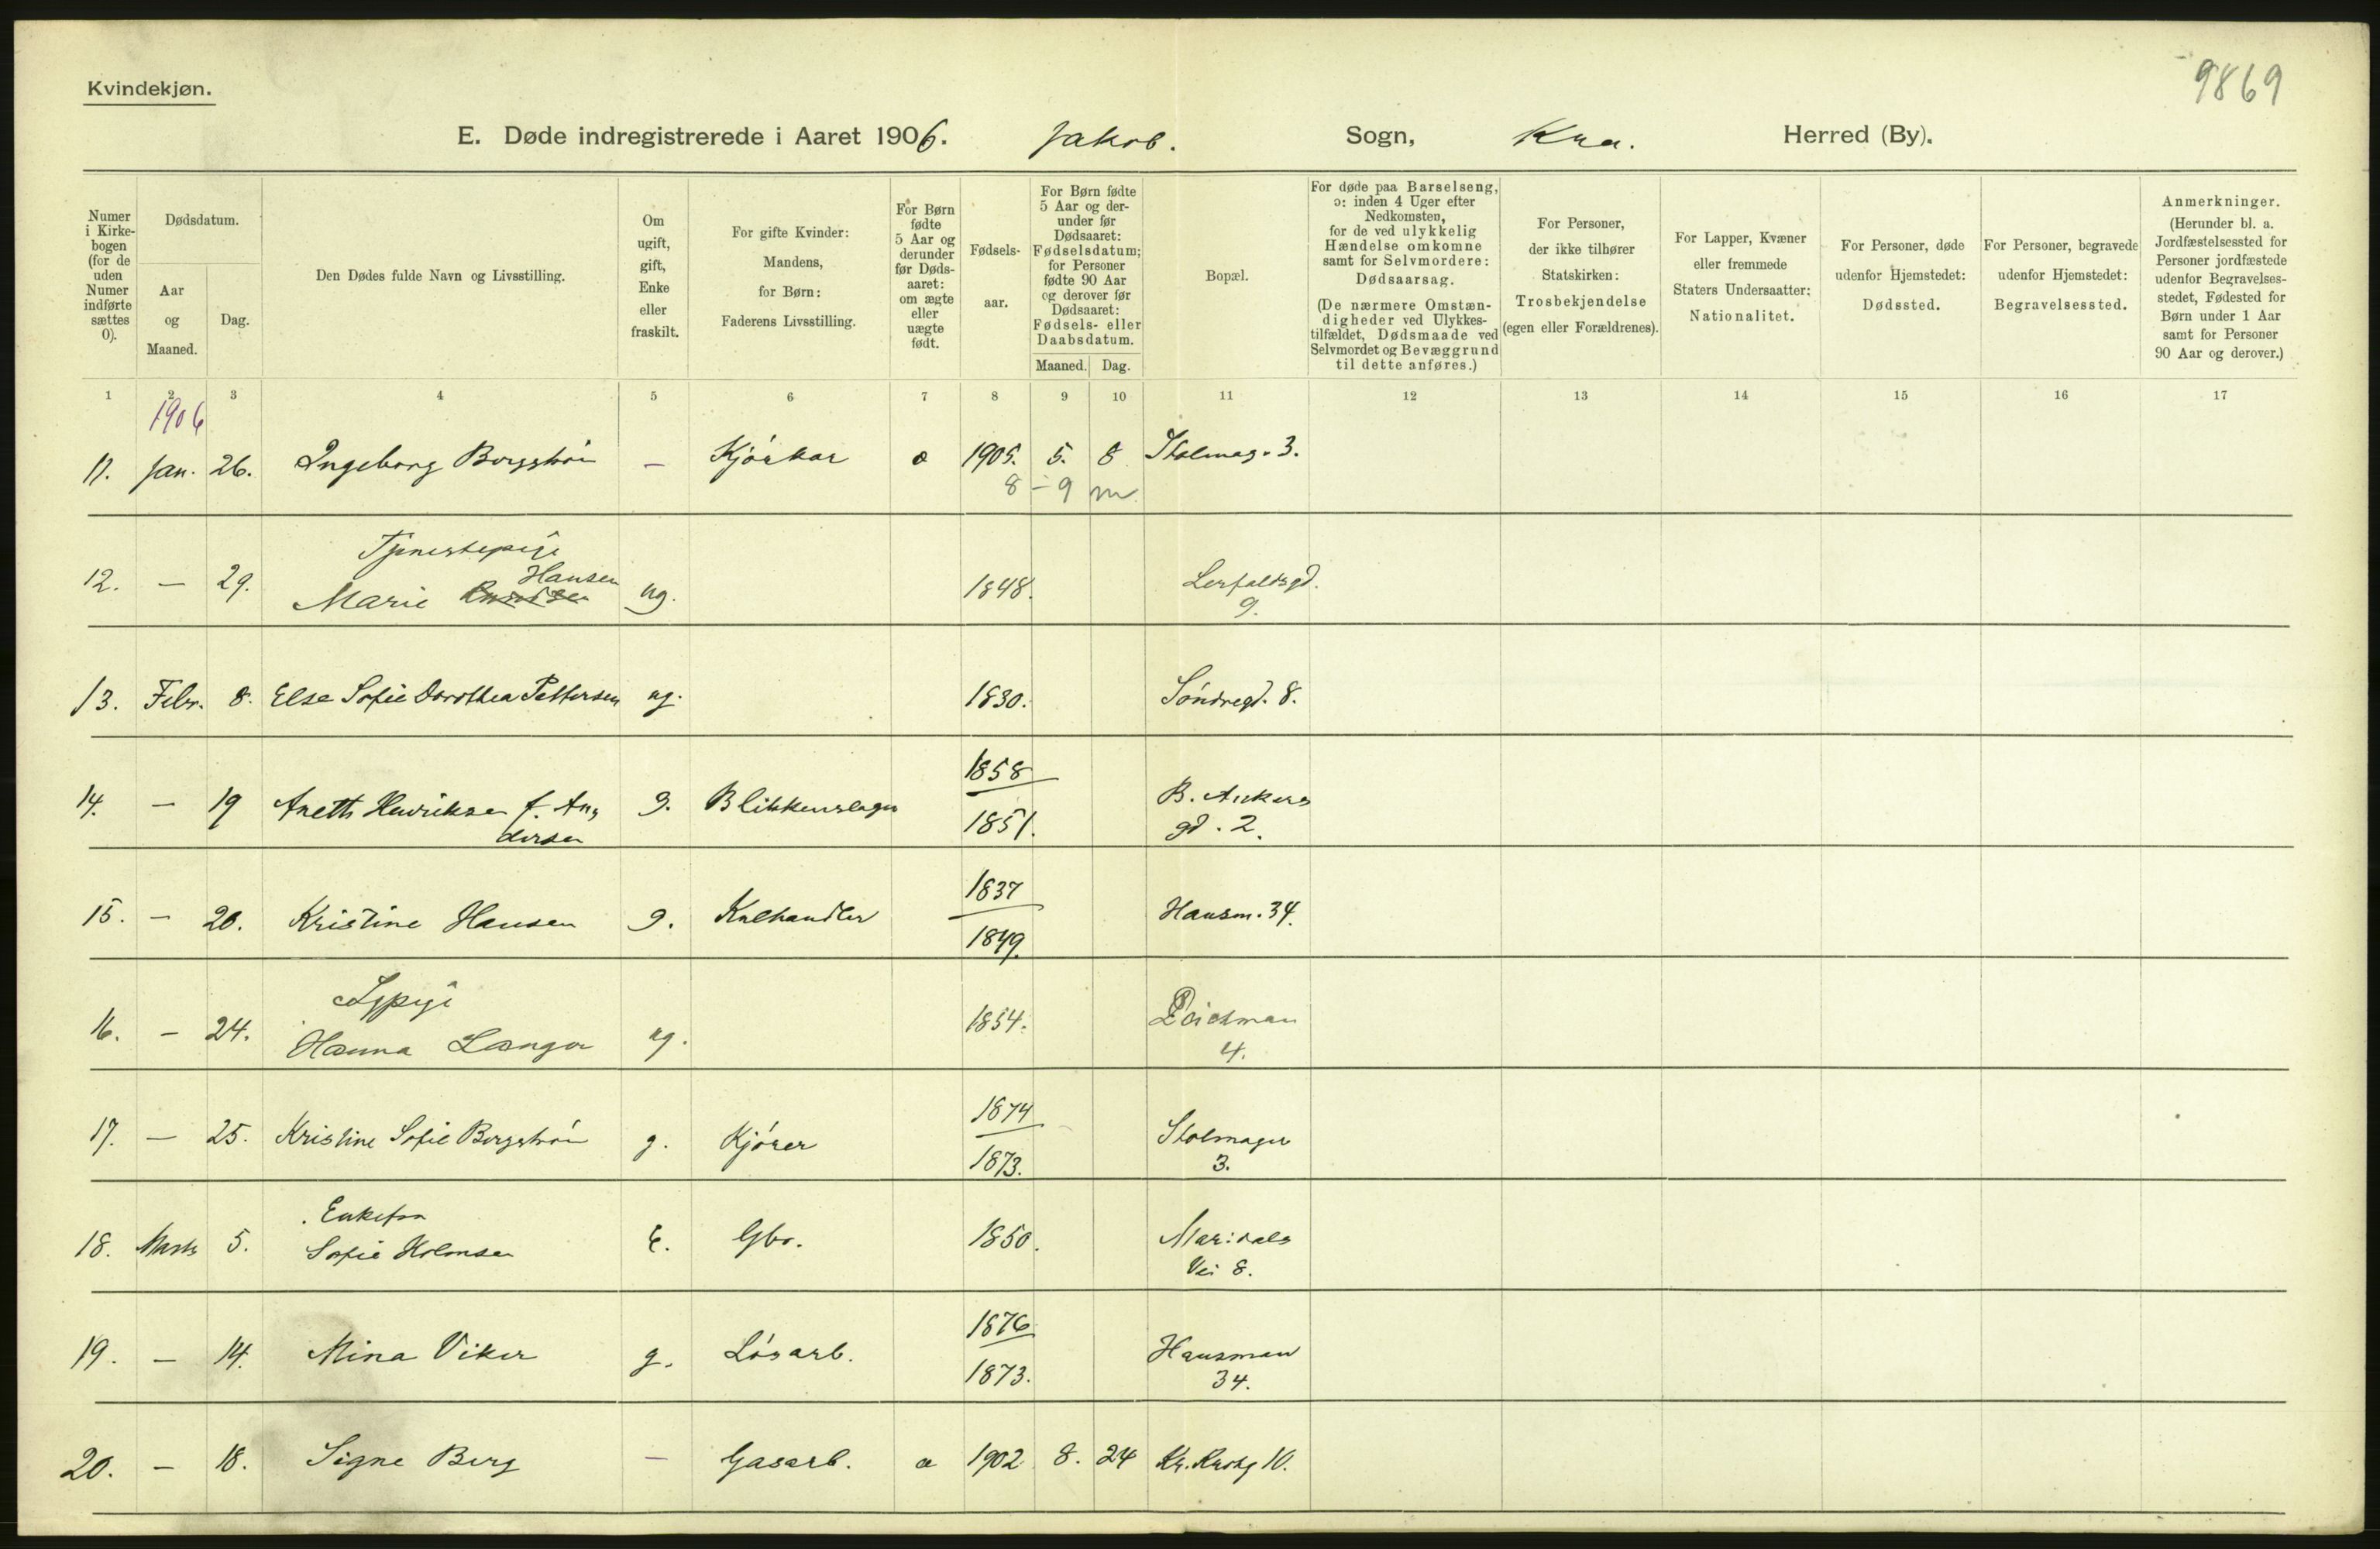 9869
Kvindekjøn.
E. Døde indregistrerede i Aaret 1906. Jakob. Sogn, Kra. Herred (By).
Numer i Kirkebogen (for de uden Numer indførte sættes 0).
Dødsdatum.
Aar og Maaned.
Dag.
Den Dødes fulde Navn og Livsstilling.
Om ugift, gift, Enke eller fraskilt.
For gifte Kvinder: Mandens, for Børn: Faderens Livsstilling.
For Børn fødte 5 Aar og derunder før Dødsaaret: om ægte eller uægte født.
Fødselsaar.
For Børn fødte 5 Aar og derunder før Dødsaaret: Fødselsdatum; for Personer fødte 90 Aar og derover før Dødsaaret: Fødsels- eller Daabsdatum.
Maaned. Dag.
Bopæl.
For døde paa Barselseng, ɔ: inden 4 Uger efter Nedkomsten, for de ved ulykkelig Hændelse omkomne samt for Selvmordere: Dødsaarsag. (De nærmere Omstændigheder ved Ulykkestilfældet, Dødsmaade ved Selvmordet og Bevæggrund til dette anføres.)
For Personer, der ikke tilhører Statskirken: Trosbekjendelse (egen eller Forældrenes).
For Lapper, Kvæner eller fremmede Staters Undersaatter: Nationalitet.
For Personer, døde udenfor Hjemstedet: Dødssted.
For Personer, begravede udenfor Hjemstedet: Begravelsessted.
Anmerkninger. (Herunder bl. a. Jordfæstelsessted for Personer jordfæstede udenfor Begravelsesstedet, Fødested for Børn under 1 Aar samt for Personer 90 Aar og derover.)
1 2 3 4 5 6 7 8 9 10 11 12 13 14 15 16 17
1906
11. Jan. 26. Ingeborg Bergström — a 1905. 5. 8 Stolmag. 3.
8 - 9 m
Tjenestepige
Hansen
12. — 29. Marie ug. 1848. Lerfaldsgd.
9.
13. Febr. 8. Else Sofie Dorothea Pettersen ug. 1830. Söndregd. 8.
1858
14. — 19 Anette Henriksen f. An- g. Blikkenslager B. Ankers
dersen 1851. gd. 2.
1837
15. — 20. Kristine Hansen g. Kulhandler Hausm. 34.
1849.
Sypige
16. — 24. Hanna Langer ug. 1854. Deichman
4.
1874
17. — 25. Kristine Sofie Bergström g. Kjörer Stolmager
1873. 3.
Enkefru
18. Marts 5. Sofie Holmsen E. Gbr. 1850. Maridals
Vei 8.
1876
19. — 14. Mina Viker g. Lösarb. Hausman
1873. 34.
20. — 18. Signe Berg — Gasarb. a 1902 8. 24 Kr. 10.